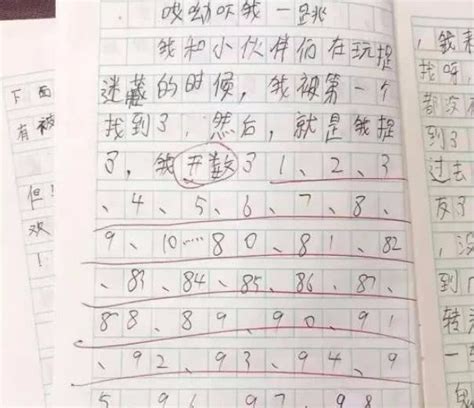 下面
有被
但!
欢
!
哎呦吓我一跳
我和小伙伴们在玩捉
迷藏的时候，我被第一个
找到了，然后，就是我捉
了，我开数了1、2、3
、4、5、6、7、8、
9、10……80、81、82
、83、84、85、86、87、
88、89、90、91
、92、93、94、9
5 96 97 98
，我来
找呀
都没
到了
过去
友了
，没
到
转
一